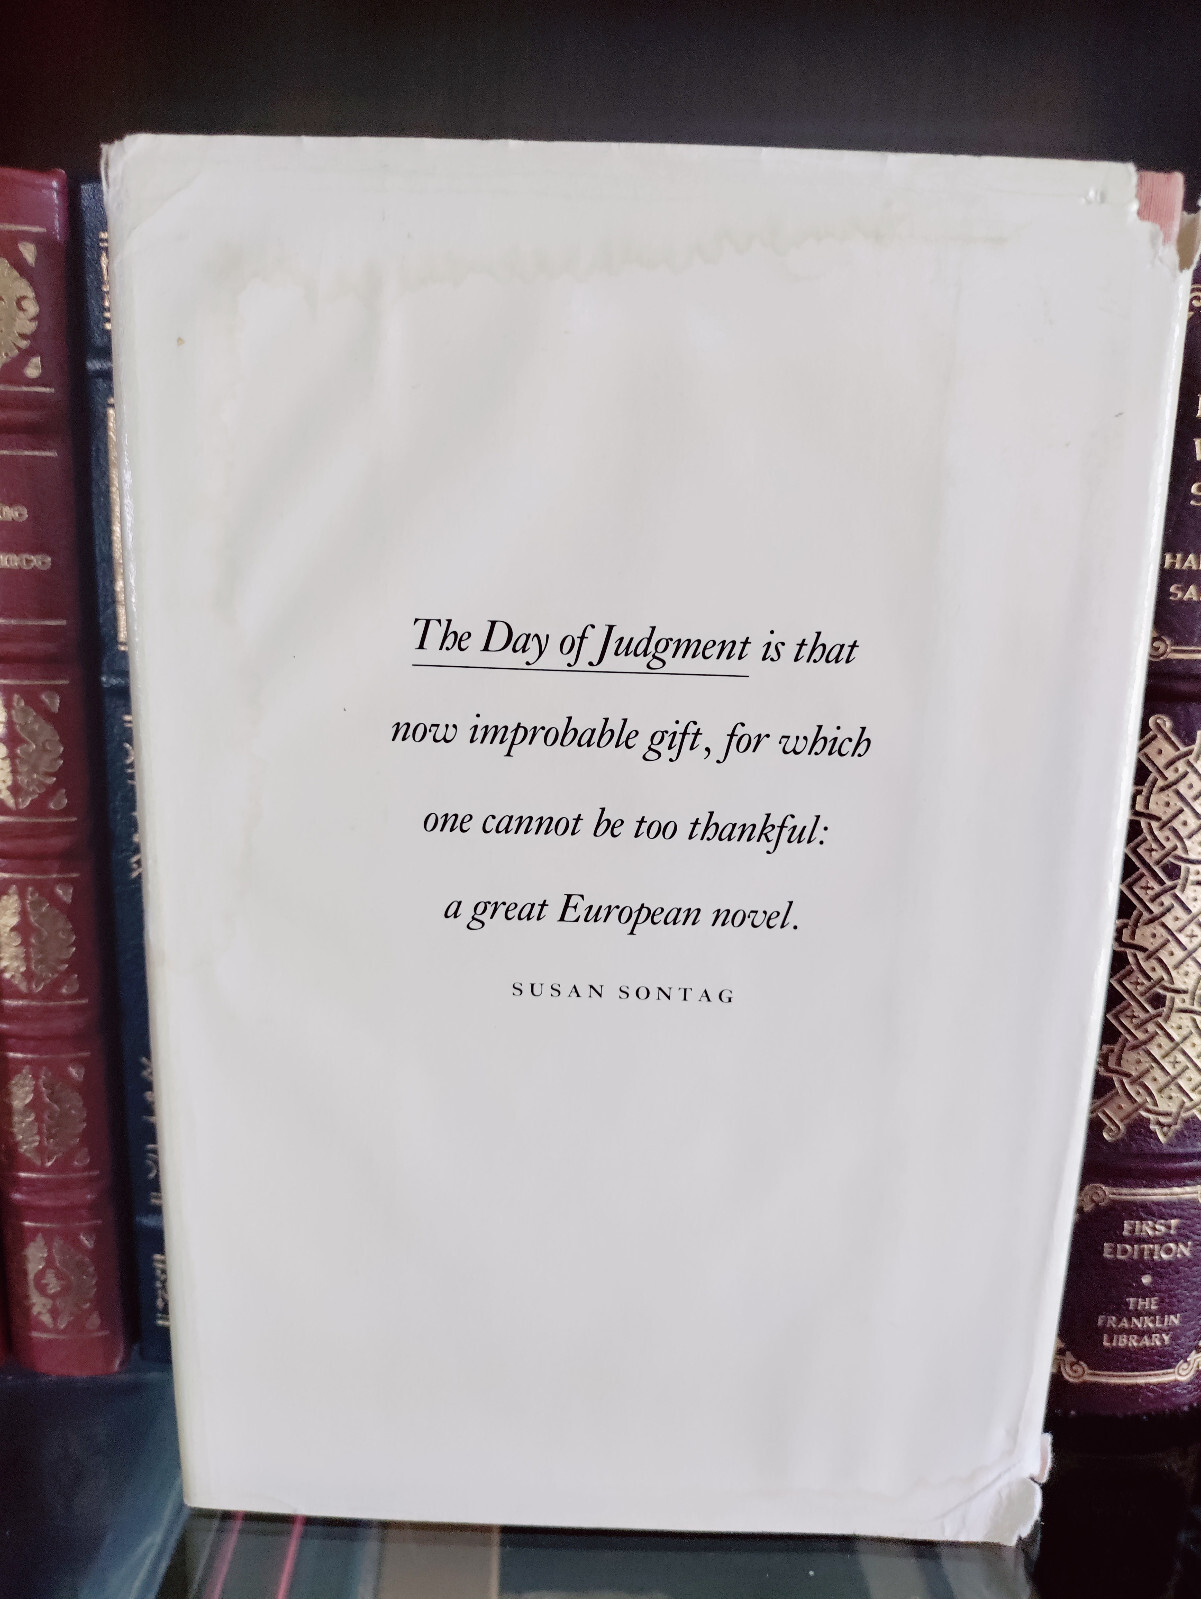 The Day of Judgment is that
now improbable gift, for which
one cannot be too thankful:
a great European novel.
SUSAN SONTAG
FIRST
EDITION
THE
FRANKLIN
LIBRARY